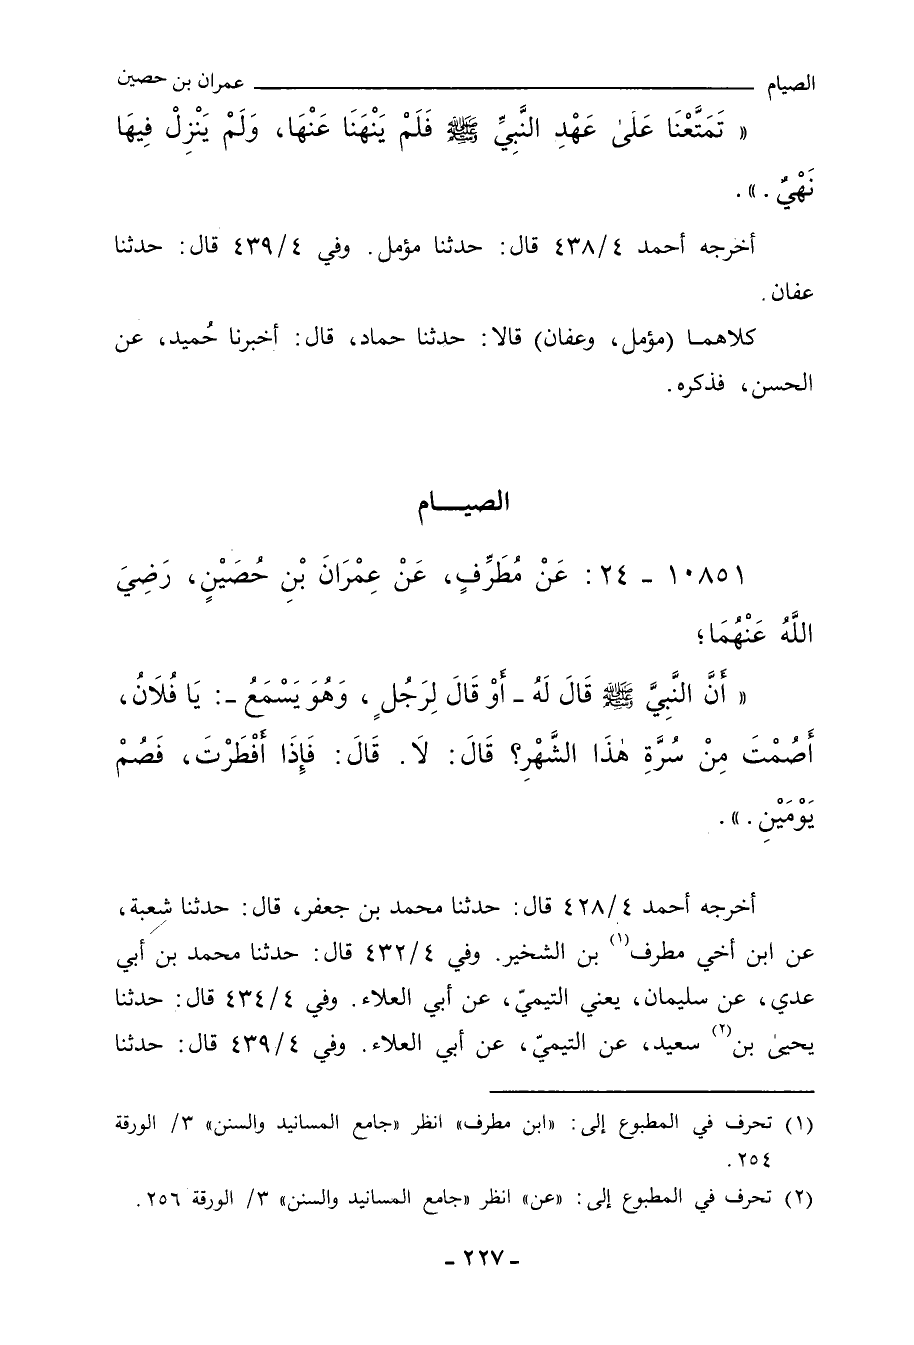 الصيام ــــــــــــــ عمران بن حصين
« تَمَتَّعْنَا عَلَىٰ عَهْدِ النَّبِيِّ ﷺ فَلَمْ يَنْهَنَا عَنْهَا، وَلَمْ يَنْزِلْ فِيهَا
نَهْيٌ . ».
أخرجه أحمد ٤/ ٤٣٨ قال: حدثنا مؤمل. وفي ٤/ ٤٣٩ قال: حدثنا
عفان.
كلاهمـا (مؤمل، وعفان) قالا: حدثنا حماد، قال: أخبرنا حُميد، عن
الحسن، فذكره.
الصيـــام
١٠٨٥١ - ٢٤: عَنْ مُطَرِّفٍ، عَنْ عِمْرَانَ بْنِ حُصَيْنٍ، رَضِيَ
اللَّهُ عَنْهُمَا؛
« أَنَّ النَّبِيَّ ﷺ قَالَ لَهُ - أَوْ قَالَ لِرَجُلٍ، وَهُوَ يَسْمَعُ -: يَا فُلَانُ،
أَصُمْتَ مِنْ سُرَّةِ هٰذَا الشَّهْرِ؟ قَالَ: لَا. قَالَ: فَإِذَا أَفْطَرْتَ، فَصُمْ
يَوْمَيْنِ . ».
أخرجه أحمد ٤/ ٤٢٨ قال: حدثنا محمد بن جعفر، قال: حدثنا شعبة،
عن ابن أخي مطرف(١) بن الشخير. وفي ٤/ ٤٣٢ قال: حدثنا محمد بن أبي
عدي، عن سليمان، يعني التيميّ، عن أبي العلاء. وفي ٤/ ٤٣٤ قال: حدثنا
يحيىٰ بن(٢) سعيد، عن التيميّ، عن أبي العلاء. وفي ٤/ ٤٣٩ قال: حدثنا
(١) تحرف في المطبوع إلى: «ابن مطرف» انظر «جامع المسانيد والسنن» ٣/ الورقة
٢٥٤.
(٢) تحرف في المطبوع إلى: «عن» انظر «جامع المسانيد والسنن» ٣/ الورقة ٢٥٦.
- ٢٢٧ -